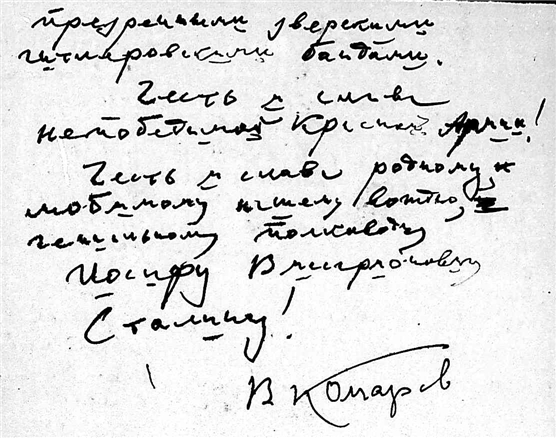 презренными зверскими
гитлеровскими бандами.
Честь и слава
непобедимой Красной Армии!
Честь и слава родному и
любимому нашему вождю,
гениальному полководцу
Иосифу Виссарионовичу
Сталину!
В Комаров